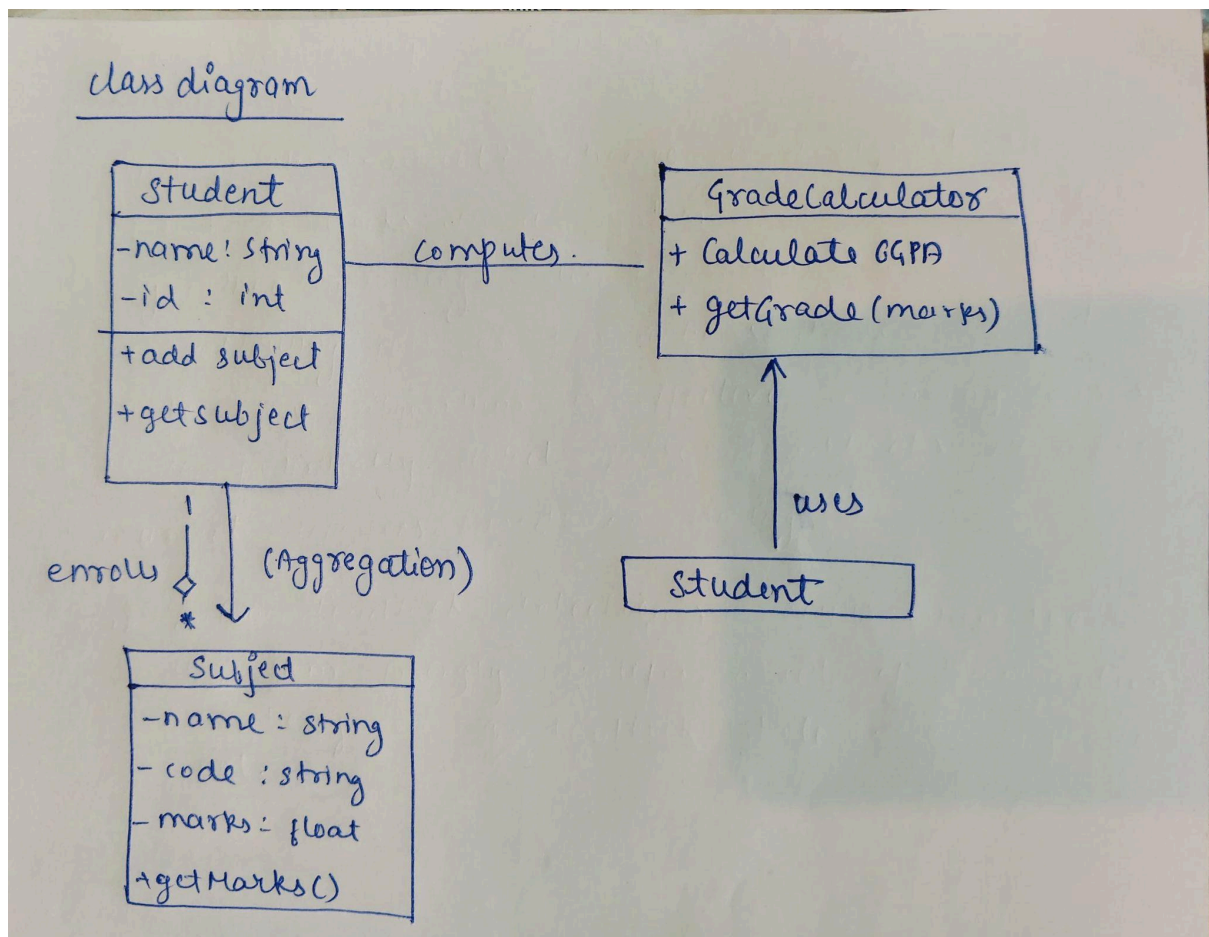 class diagram
Student
-name: string
-id : int
+add subject
+getsubject
computes.
GradeCalculator
+ Calculate GGPA
+ getGrade(marks)
uses
Student
1
enrolls
(Aggregation)
*
Subject
-name : string
- code : string
- marks: float
+getMarks()